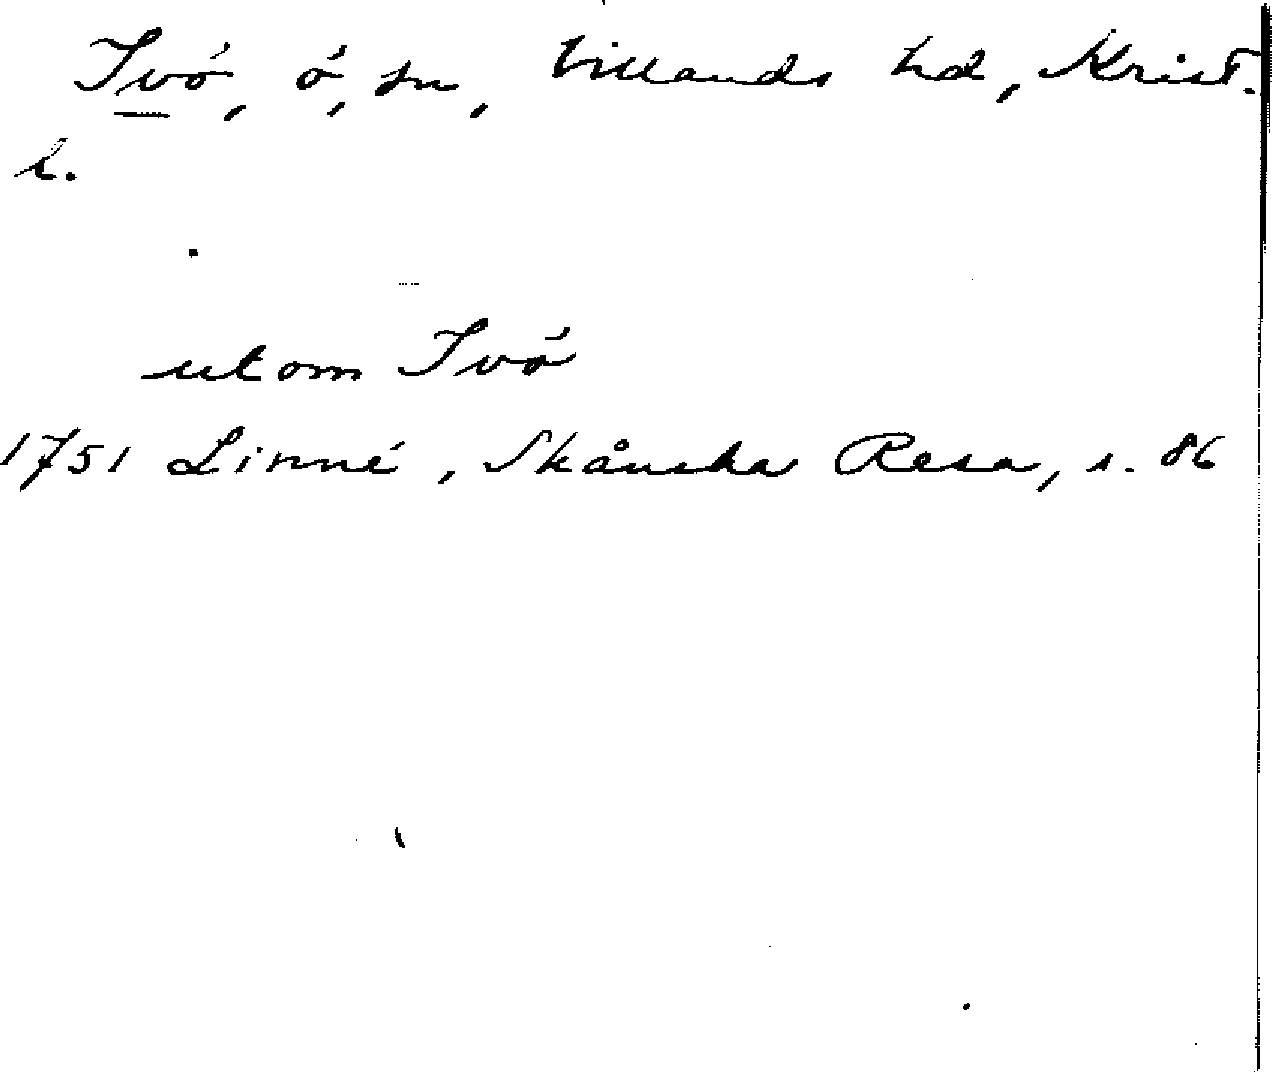 Ivö, ö, sn, Villands hd, Krist.
l.
utom Ivö
1751 Linné, Skånska Resa, s. 86